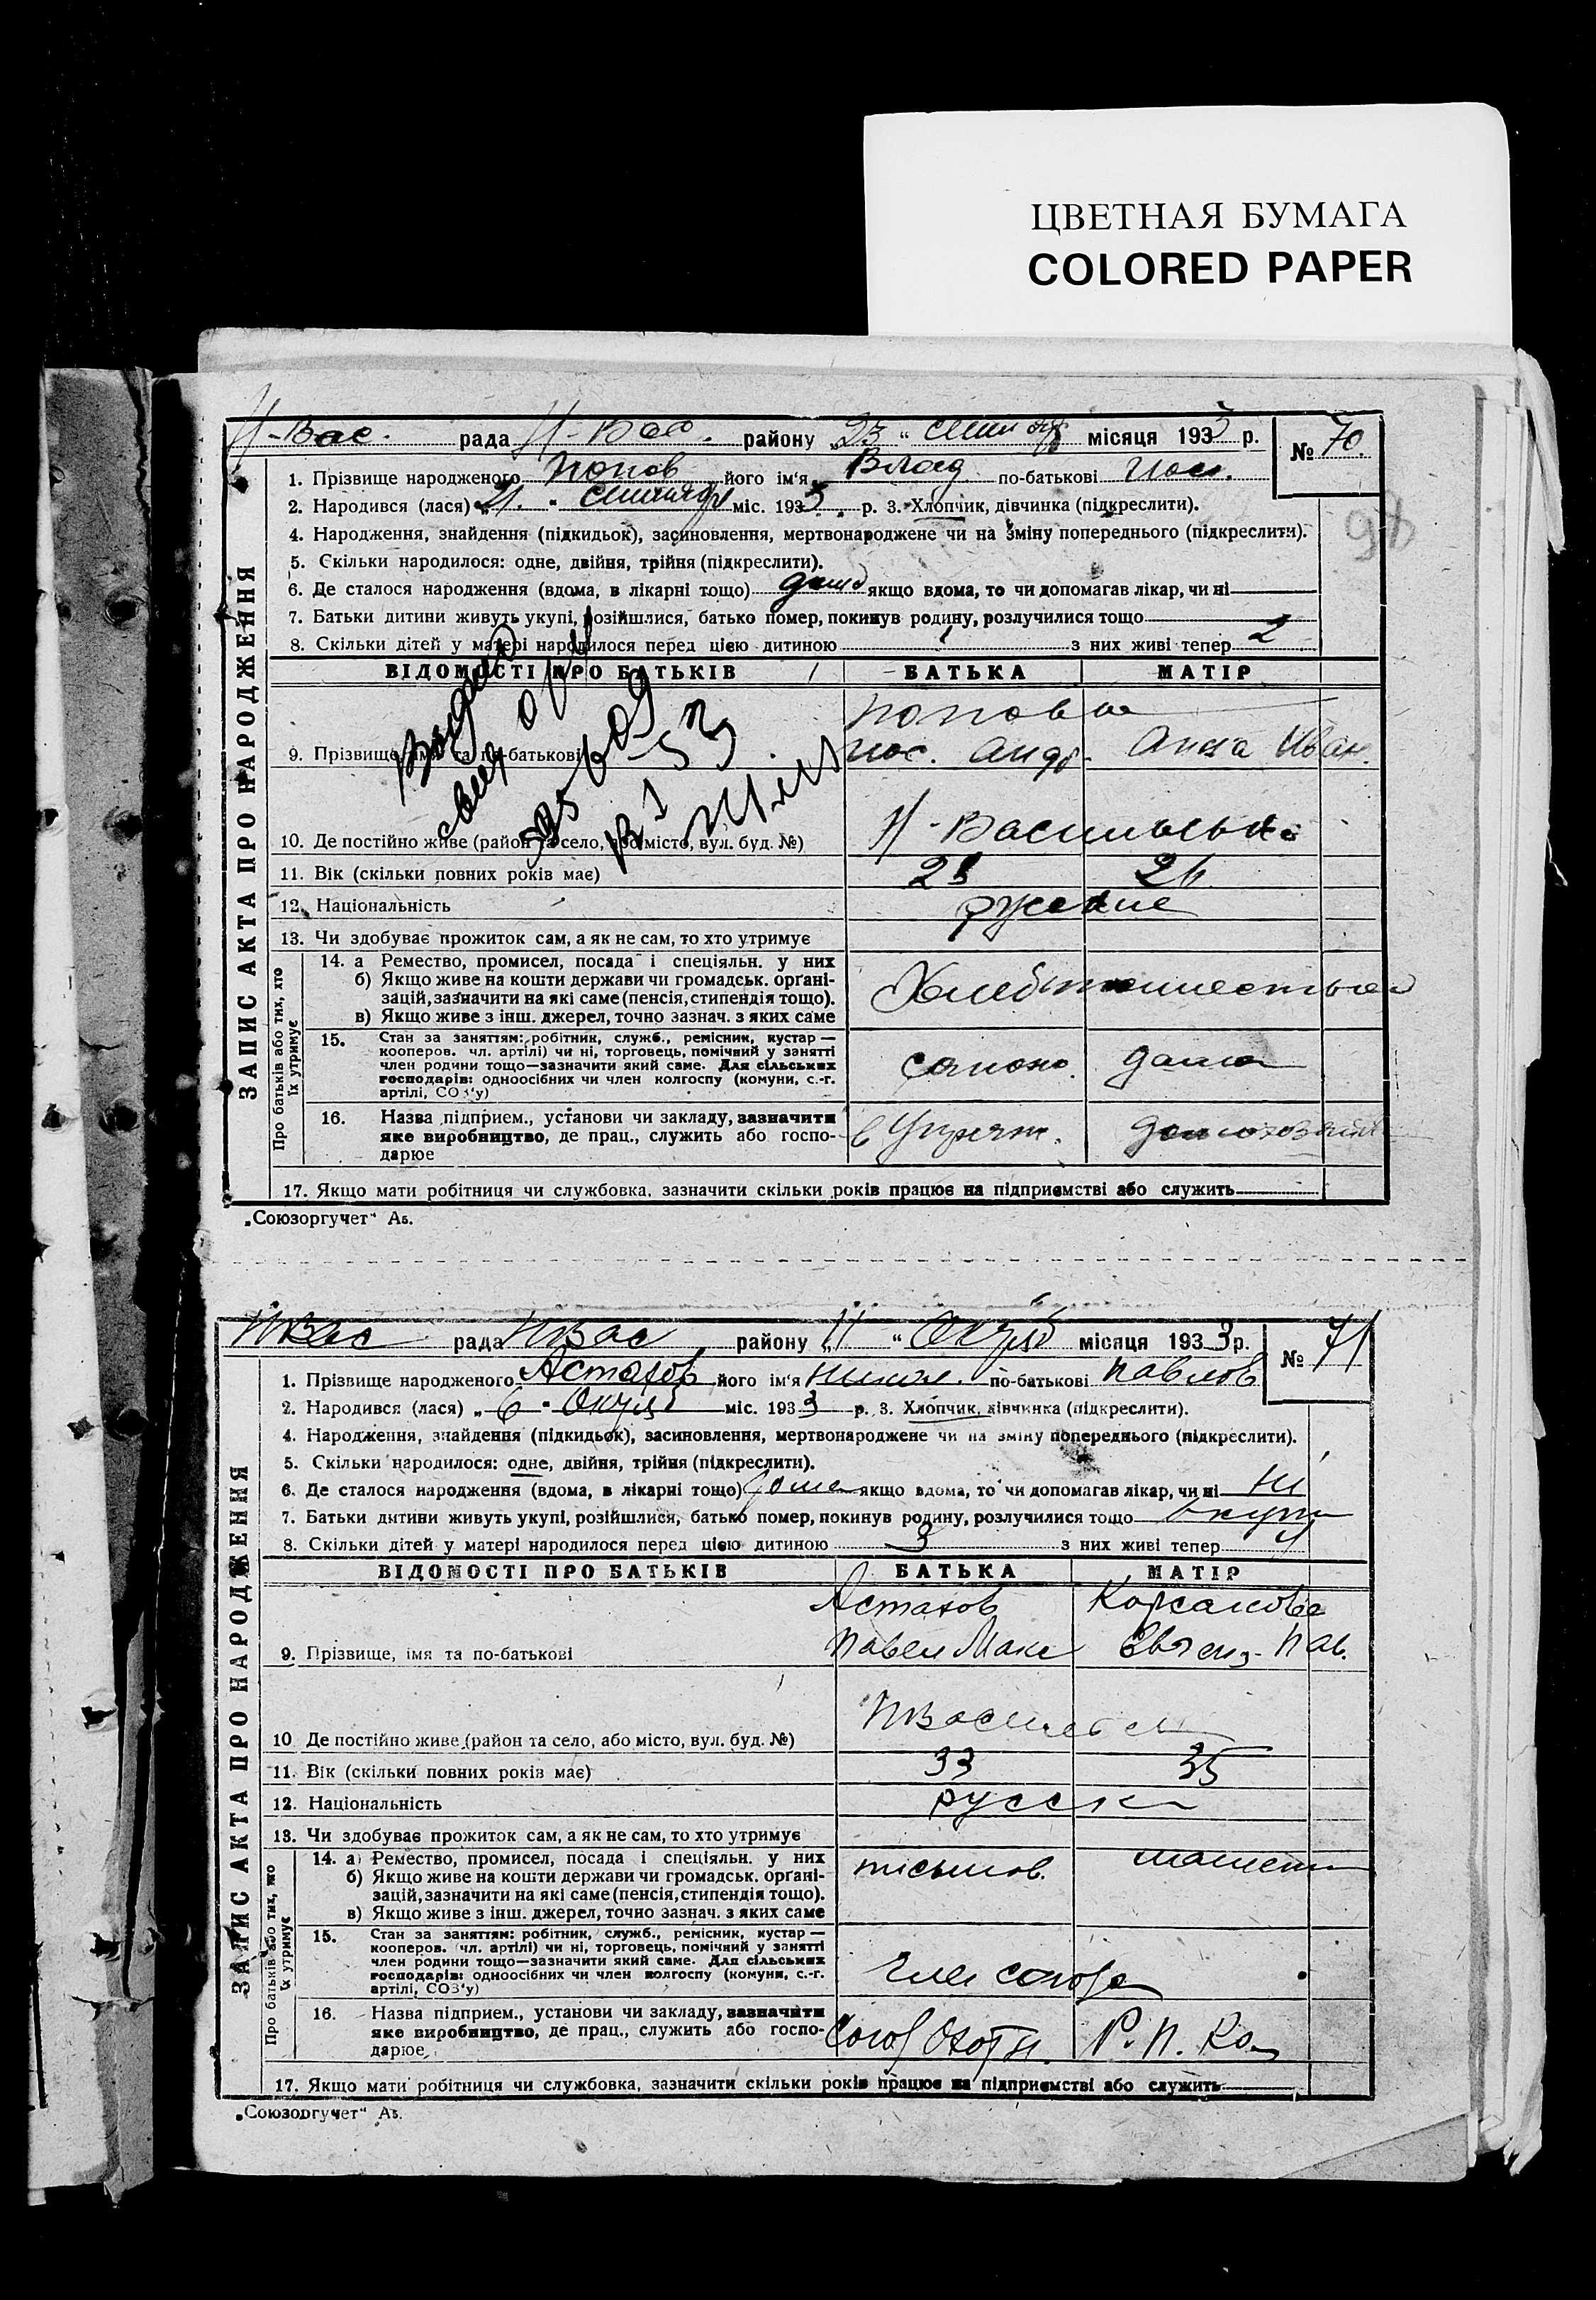 ЦВЕТНАЯ БУМАГА
COLORED PAPER
Н-Вас. рада Н-Вас. району „23“ місяця 1933 р. № 70.
1. Прізвище народженого Попов його ім‘я Влад по-батькові
2. Народився (лася) „21.“ міс. 1933 р. 3. Хлопчик, дівчинка (підкреслити).
4. Народження, знайдення (підкидьок), засиновлення, мертвонароджене чи на зміну попереднього (підкреслити).
5. Скільки народилося: одне, двійня, трійня (підкреслити).
6. Де сталося народження (вдома, в лікарні тощо) якщо вдома, то чи допомагав лікар, чи ні
7. Батьки дитини живуть укупі, розійшлися, батько помер, покинув родину, розлучилися тощо
8. Скільки дітей у матері народилося перед цією дитиною 1 з них живі тепер 2
ВІДОМОСТІ ПРО БАТЬКІВ БАТЬКА МАТІР
Поповы
9. Прізвище, імя та по-батькові Анна Иван.
10. Де постійно живе (район та село, або місто, вул. буд. №)
11. Вік (скільки повних років має) 26
12. Національність русские
13. Чи здобуває прожиток сам, а як не сам, то хто утримує
ЗАПИС АКТА ПРО НАРОДЖЕННЯ
Про батьків або тих, хто їх утримує
14. а Ремество, промисел, посада і спеціяльн. у них
б) Якщо живе на кошти держави чи громадськ. орґані-
зацій, зазначити на які саме (пенсія, стипендія тощо).
в) Якщо живе з інш. джерел, точно зазнач. з яких саме
15. Стан за заняттям: робітник, служб., ремісник, кустар —
кооперов. чл. артілі) чи ні, торговець, помічний у занятті
член родини тощо—зазначити який саме. Для сільських
господарів: одноосібних чи член колгоспу (комуни, с.-г.
артілі, СОЗ‘у)
16. Назва підприєм., установи чи закладу, зазначити
яке виробництво, де прац., служить або госпо-
дарює
17. Якщо мати робітниця чи службовка, зазначити скільки років працює на підприємстві або служить
„Союзоргучет“ А5.
НВас рада НВас району „11“ місяця 1933 р. № 71
1. Прізвище народженого Астахов його ім‘я Никол. по-батькові Павлов
2. Народився (лася) „6“ міс. 1933 р. 3. Хлопчик, дівчинка (підкреслити).
4. Народження, знайдення (підкидьок), засиновлення, мертвонароджене чи на зміну попереднього (підкреслити).
5. Скільки народилося: одне, двійня, трійня (підкреслити).
6. Де сталося народження (вдома, в лікарні тощо) дома якщо вдома, то чи допомагав лікар, чи ні ні
7. Батьки дитини живуть укупі, розійшлися, батько помер, покинув родину, розлучилися тощо вкупі
8. Скільки дітей у матері народилося перед цією дитиною 3 з них живі тепер 4
ВІДОМОСТІ ПРО БАТЬКІВ БАТЬКА МАТІР
Астахов Корсакова
9. Прізвище, імя та по-батькові Павел Макс Пав.
10 Де постійно живе (район та село, або місто, вул. буд. №)
11. Вік (скільки повних років має) 33 35
12. Національність русск
13. Чи здобуває прожиток сам, а як не сам, то хто утримує
ЗАПИС АКТА ПРО НАРОДЖЕННЯ
Про батьків або тих, хто їх утримує
14. а) Ремество, промисел, посада і спеціяльн. у них
б) Якщо живе на кошти держави чи громадськ. орґані-
зацій, зазначити на які саме (пенсія, стипендія тощо).
в) Якщо живе з інш. джерел, точно зазнач. з яких саме
15. Стан за заняттям: робітник, служб., ремісник, кустар —
кооперов. чл. артілі) чи ні, торговець, помічний у занятті
член родини тощо—зазначити який саме. Для сільських
господарів: одноосібних чи член колгоспу (комуни, с.-г.
артілі, СОЗ‘у) член союза
16. Назва підприєм., установи чи закладу, зазначити
яке виробництво, де прац., служить або госпо- Союз Охотн.
дарює
17. Якщо мати робітниця чи службовка, зазначити скільки років працює на підприємстві або служить
„Союзоргучет“ А5.